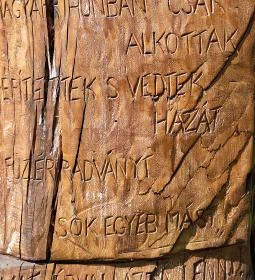 MAGYAR HONBAN CSAK
ALKOTTAK
ÉPÍTETTEK S VÉDTEK
HAZÁT
FÜZÉRRADVÁNYI
SOK EGYÉB MÁST